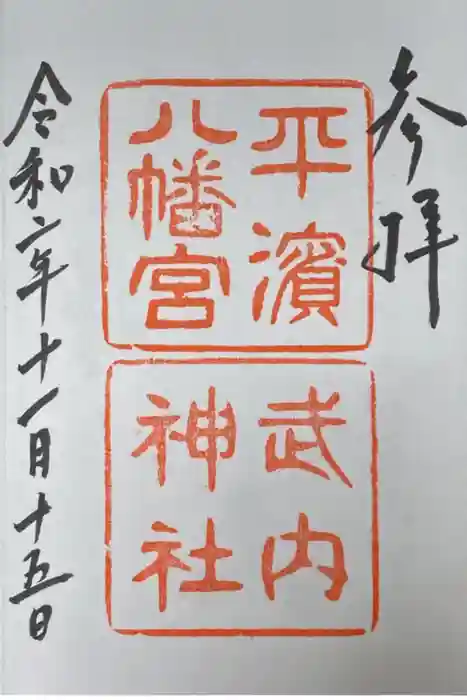 参拝
平濱
八幡宮
武内
神社
令和二年十一月十五日